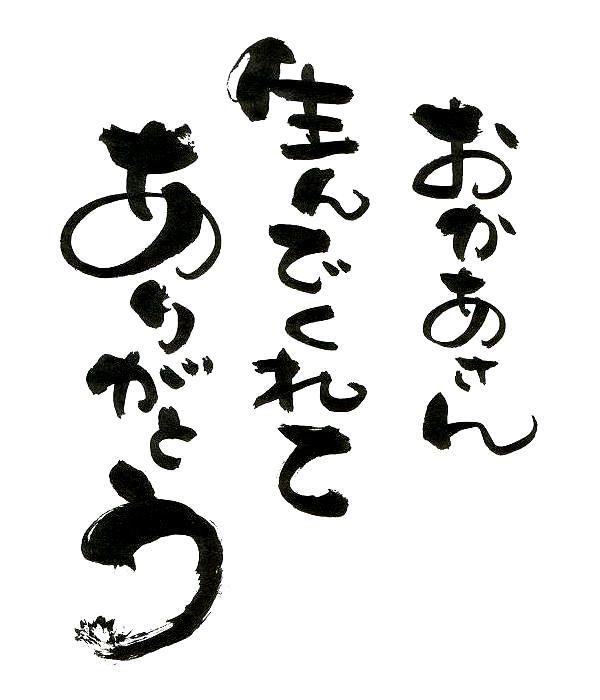 おかあさん
生んでくれて
ありがとう